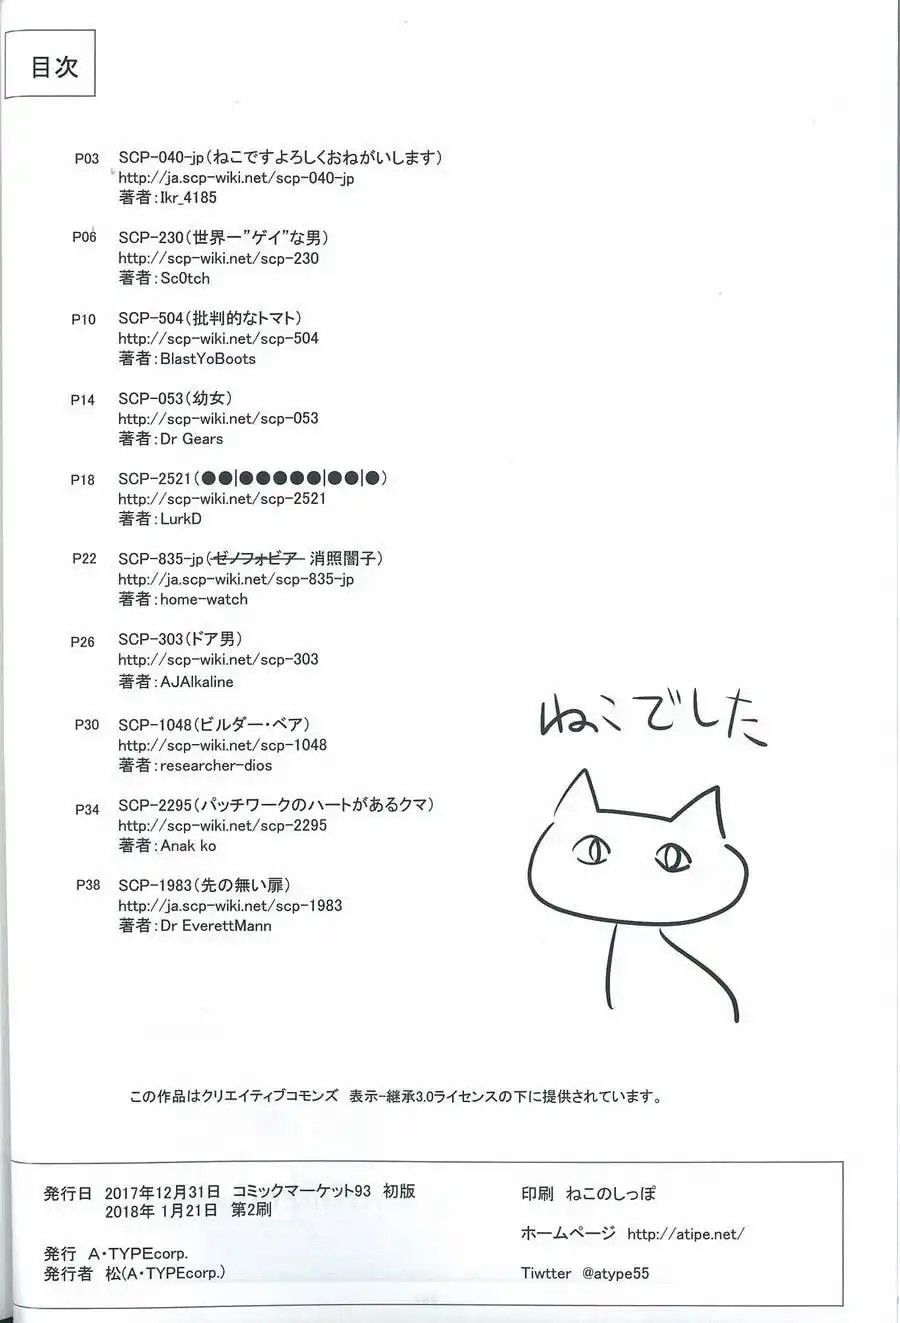 目次
P03 SCP-040-jp(ねこですよろしくおねがいします)
http://ja.scp-wiki.net/scp-040-jp
著者:Ikr_4185
P06 SCP-230(世界一"ゲイ"な男)
http://scp-wiki.net/scp-230
著者:Sc0tch
P10 SCP-504(批判的なトマト)
http://scp-wiki.net/scp-504
著者:BlastYoBoots
P14 SCP-053(幼女)
http://scp-wiki.net/scp-053
著者:Dr Gears
P18 SCP-2521(●●|●●●●●|●●|●)
http://scp-wiki.net/scp-2521
著者:LurkD
P22 SCP-835-jp(ゼノフォビア 消照闇子)
http://ja.scp-wiki.net/scp-835-jp
著者:home-watch
P26 SCP-303(ドア男)
http://scp-wiki.net/scp-303
著者:AJAlkaline
P30 SCP-1048(ビルダー・ベア)
http://scp-wiki.net/scp-1048
著者:researcher-dios
P34 SCP-2295(パッチワークのハートがあるクマ)
http://scp-wiki.net/scp-2295
著者:Anak ko
P38 SCP-1983(先の無い扉)
http://ja.scp-wiki.net/scp-1983
著者:Dr EverettMann
ねこでした
この作品はクリエイティブコモンズ 表示-継承3.0ライセンスの下に提供されています。
発行日 2017年12月31日 コミックマーケット93 初版
2018年 1月21日 第2刷
発行 A・TYPEcorp.
発行者 松(A・TYPEcorp.)
印刷 ねこのしっぽ
ホームページ http://atipe.net/
Tiwtter @atype55